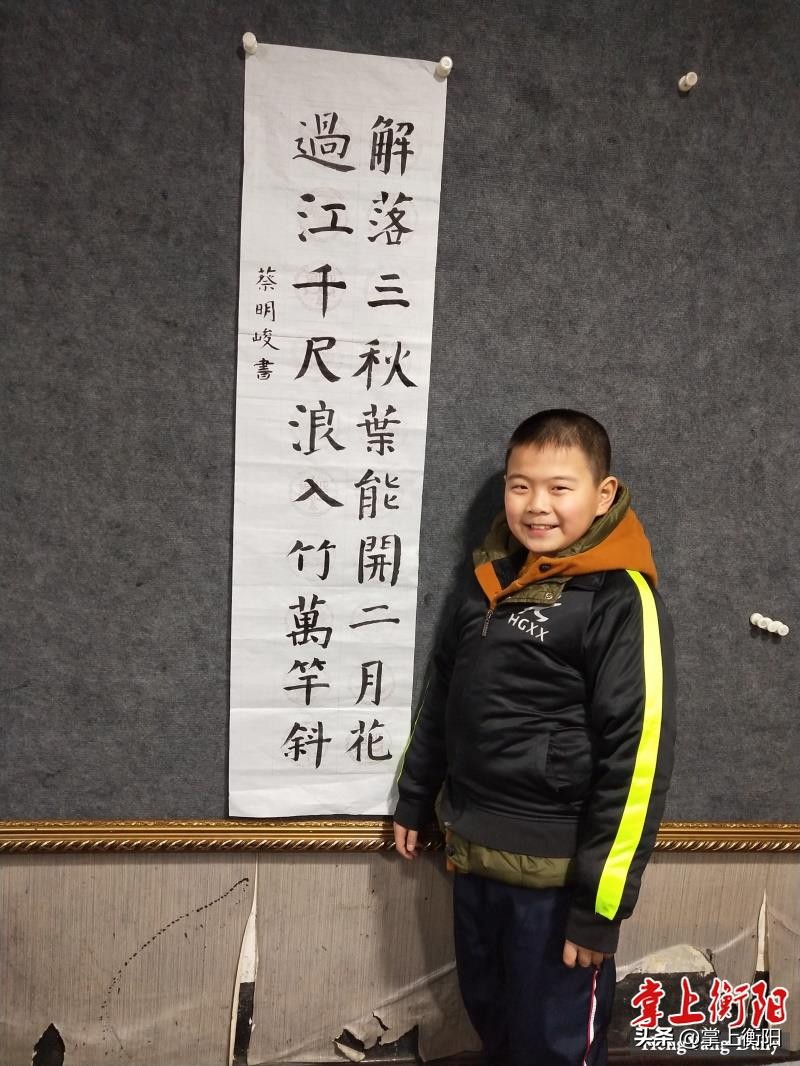 解落三秋葉能開二月花
過江千尺浪入竹萬竿斜
蔡明峻書
HGXX
掌上衡阳
头条 @掌上衡阳